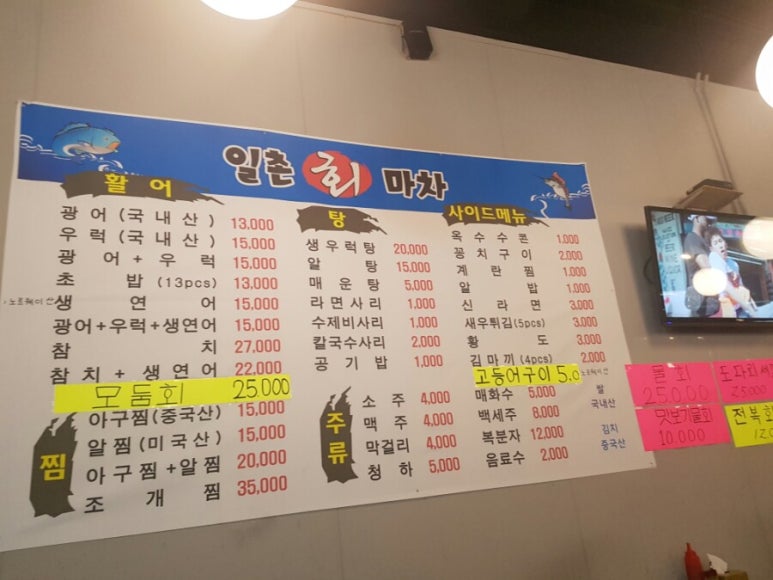 일촌 회 마차
활어
광어(국내산) 13,000
우럭(국내산) 15,000
광어+우럭 15,000
초밥(13pcs) 13,000
노르웨이산
생연어 15,000
광어+우럭+생연어 15,000
참치 27,000
참치+생연어 22,000
모둠회 25.000
찜
아구찜(중국산) 15,000
알찜(미국산) 15,000
아구찜+알찜 20,000
조개찜 35,000
탕
생우럭탕 20,000
알탕 15,000
매운탕 5,000
라면사리 1,000
수제비사리 1,000
칼국수사리 2,000
공기밥 1,000
주류
소주 4,000
맥주 4,000
막걸리 4,000
청하 5,000
사이드메뉴
옥수수콘 1,000
꽁치구이 2,000
계란찜 1,000
알밥 1,000
신라면 3,000
새우튀김(5pcs) 3,000
황도 3,000
김마끼(4pcs) 2,000
고등어구이 5.0
노르웨이산
매화수 5,000
백세주 8,000
복분자 12,000
음료수 2,000
쌀
국내산
김치
중국산
물회
25,000
맛보기물회
10.000
도다리세
25000
전복회